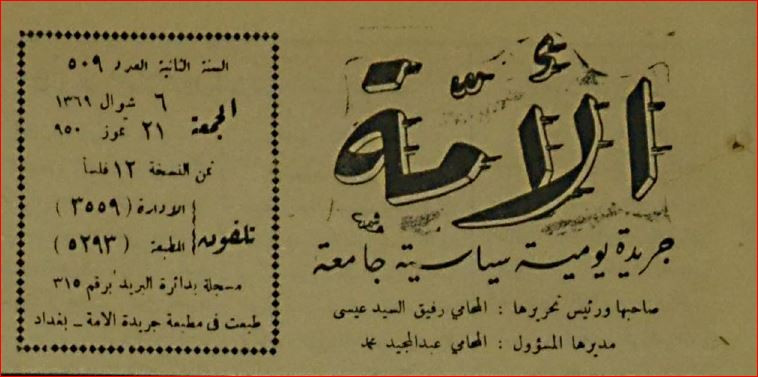 الأمة
جريدة يومية سياسية جامعة
صاحبها ورئيس تحريرها : المحامي رفيق السيد عيسى
مديرها المسؤول : المحامي عبدالمجيد محمد
السنة الثانية العدد ٥٠٩
الجمعة
٦ شوال ١٣٦٩
٢١ تموز ٩٥٠
ثمن النسخة ١٢ فلساً
تلفون
الادارة ( ٣٥٥٩ )
المطبعة ( ٥٢٩٣ )
مسجلة بدائرة البريد برقم ٣١٥
طبعت في مطبعة جريدة الامة ـ بغداد